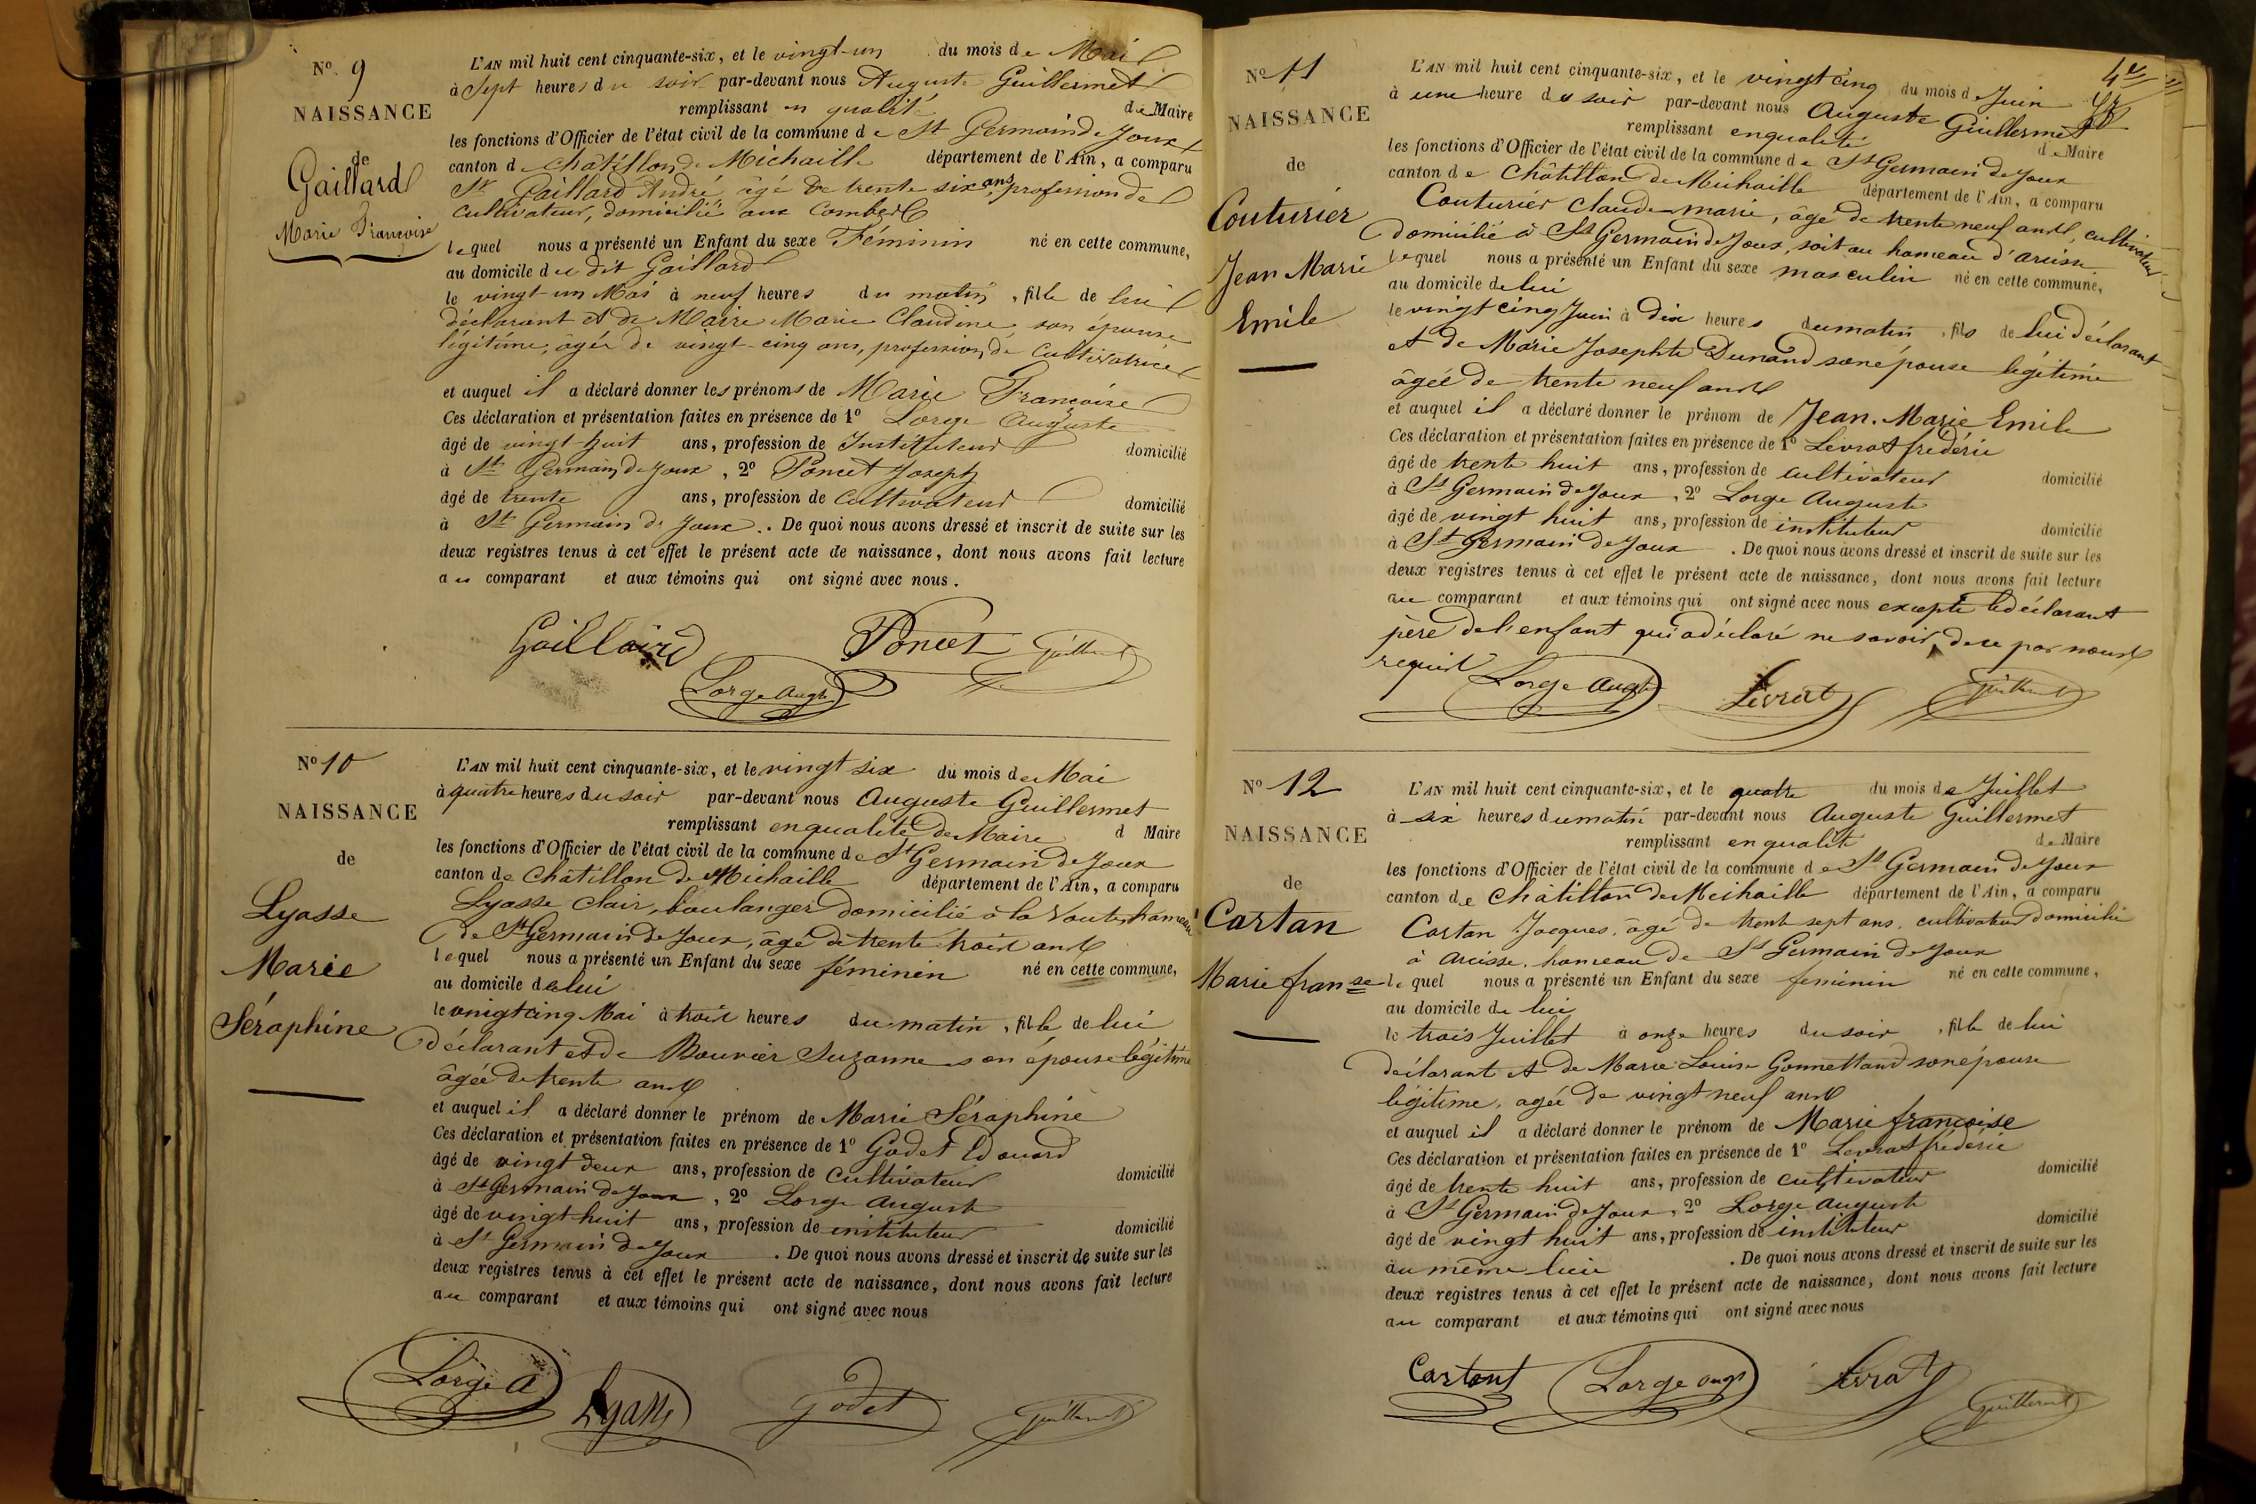 N° 9
NAISSANCE
de
Gaillard
Marie Françoise
L'AN mil huit cent cinquante-six, et le vingt-un du mois de Mai
à Sept heures du soir par-devant nous Auguste Guillermet
remplissant en qualité de Maire
les fonctions d'Officier de l'état civil de la commune de St Germain de Joux
canton de Châtillon de Michaille département de l'Ain, a comparu
Sr Gaillard André, âgé de trente six ans, profession de
cultivateur, domicilié aux Combes
lequel nous a présenté un Enfant du sexe Féminin né en cette commune,
au domicile du dit Gaillard
le vingt-un Mai à neuf heures du matin, fille de lui
déclarant et de Maire Marie Claudine, son épouse
légitime, agée de vingt-cinq ans, profession de Cultivatrice
et auquel il a déclaré donner les prénoms de Marie Françoise
Ces déclaration et présentation faites en présence de 1° Lorge Auguste
âgé de vingt-huit ans, profession de Instituteur domicilié
à St Germain de Joux, 2° Poncet Joseph
âgé de trente ans, profession de Cultivateur domicilié
à St Germain de Joux. De quoi nous avons dressé et inscrit de suite sur les
deux registres tenus à cet effet le présent acte de naissance, dont nous avons fait lecture
au comparant et aux témoins qui ont signé avec nous.
Gaillard Poncet Guillermet
Lorge Augte
N° 10
NAISSANCE
de
Lyasse
Marie
Séraphine
L'AN mil huit cent cinquante-six, et le vingt six du mois de Mai
à quatre heures du soir par-devant nous Auguste Guillermet
remplissant en qualité de Maire d Maire
les fonctions d'Officier de l'état civil de la commune de St Germain de Joux
canton de Châtillon de Michaille département de l'Ain, a comparu
Lyasse Clair, boulanger domicilié à la Voute, hameau
de St Germain de Joux, âgé de trente trois ans
lequel nous a présenté un Enfant du sexe féminin né en cette commune,
au domicile de lui
le vingt cinq Mai à trois heures du matin, fille de lui
déclarant et de Bouvier Suzanne son épouse légitime
âgée de trente ans
et auquel il a déclaré donner le prénom de Marie Séraphine
Ces déclaration et présentation faites en présence de 1° Godet Edouard
âgé de vingt deux ans, profession de Cultivateur domicilié
à St Germain de Joux, 2° Lorge August
âgé de vingt huit ans, profession de instituteur domicilié
à St Germain de Joux. De quoi nous avons dressé et inscrit de suite sur les
deux registres tenus à cet effet le présent acte de naissance, dont nous avons fait lecture
au comparant et aux témoins qui ont signé avec nous
Lorge A Lyasse Godet Guillermet
4e
N° 11
NAISSANCE
de
Couturier
Jean Marie
Emile
L'AN mil huit cent cinquante-six, et le vingt cinq du mois d Juin
à une heure du soir par-devant nous Auguste Guillermet
remplissant en qualité de Maire
les fonctions d'Officier de l'état civil de la commune de St Germain de Joux
canton de Châtillon de Michaille département de l'Ain, a comparu
Couturier Claude-marie, âgé de trente neuf ans, cultivateur
domicilié à St Germain de Joux, soit au hameau d'arcisse
lequel nous a présenté un Enfant du sexe masculin né en cette commune,
au domicile de lui
le vingt cinq Juin à dix heures du matin, fils de lui déclarant
et de Marie Josephte Dunand son épouse légitime
âgée de trente neuf ans
et auquel il a déclaré donner le prénom de Jean-Marie Emile
Ces déclaration et présentation faites en présence de 1° Levrat frédéric
âgé de trente huit ans, profession de cultivateur domicilié
à St Germain de Joux, 2° Lorge Auguste
âgé de vingt huit ans, profession de instituteur domicilié
à St Germain de Joux. De quoi nous avons dressé et inscrit de suite sur les
deux registres tenus à cet effet le présent acte de naissance, dont nous avons fait lecture
au comparant et aux témoins qui ont signé avec nous excepté le déclarant
père de l'enfant qui a déclaré ne savoir, de ce par nous
requis Lorge Augte Levrat Guillermet
N° 12
NAISSANCE
de
Cartan
Marie franse
L'AN mil huit cent cinquante-six, et le quatre du mois de Juillet
à six heures du matin par-devant nous Auguste Guillermet
remplissant en qualité de Maire
les fonctions d'Officier de l'état civil de la commune de St Germain de Joux
canton de Châtillon de Michaille département de l'Ain, a comparu
Cartan Jacques, âgé de trente sept ans, cultivateur domicilié
à Arcisse, hameau de St Germain de Joux
lequel nous a présenté un Enfant du sexe féminin né en cette commune,
au domicile de lui
le trois Juillet à onze heures du soir, fille de lui
déclarant et de Marie Louise Gonnettand son épouse
légitime, agée de vingt neuf ans
et auquel il a déclaré donner le prénom de Marie françoise
Ces déclaration et présentation faites en présence de 1° Levrat frédéric
âgé de trente huit ans, profession de cultivateur domicilié
à St Germain de Joux, 2° Lorge Auguste
âgé de vingt huit ans, profession de instituteur domicilié
au même lieu. De quoi nous avons dressé et inscrit de suite sur les
deux registres tenus à cet effet le présent acte de naissance, dont nous avons fait lecture
au comparant et aux témoins qui ont signé avec nous
Cartant Lorge Augt Levrat Guillermet